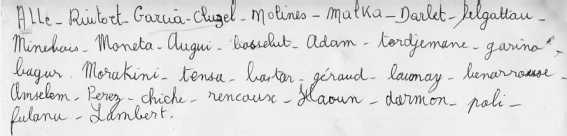 Alle - Rintort - Garcia - Cluzel - Molines - Malka - Darlet - Delgattau -
Minehais - Moneta - Augui - bosselut - Adam - tordjemane - garino -
bagur. Morakini - tensa - bartar - géraud - launay - benarrousse -
Amselem - Perez - chiche - rencause - Haoun - darmon - poli -
fulanu - Lambert.